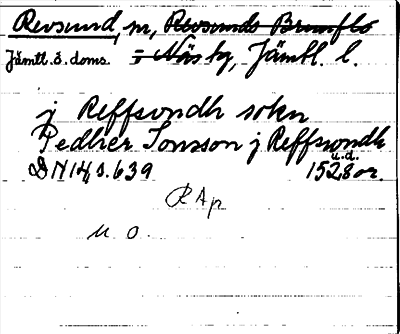 Revsund, sn, Revsunds Brunflo
Jämtl. ö. doms. o. Näs hg, Jämtl. l.
j Reffsondh sokn
Pedher Jonsson j Reffsondh
u.d.
DN 14 s. 639 1528 or.
RAp
u. o.